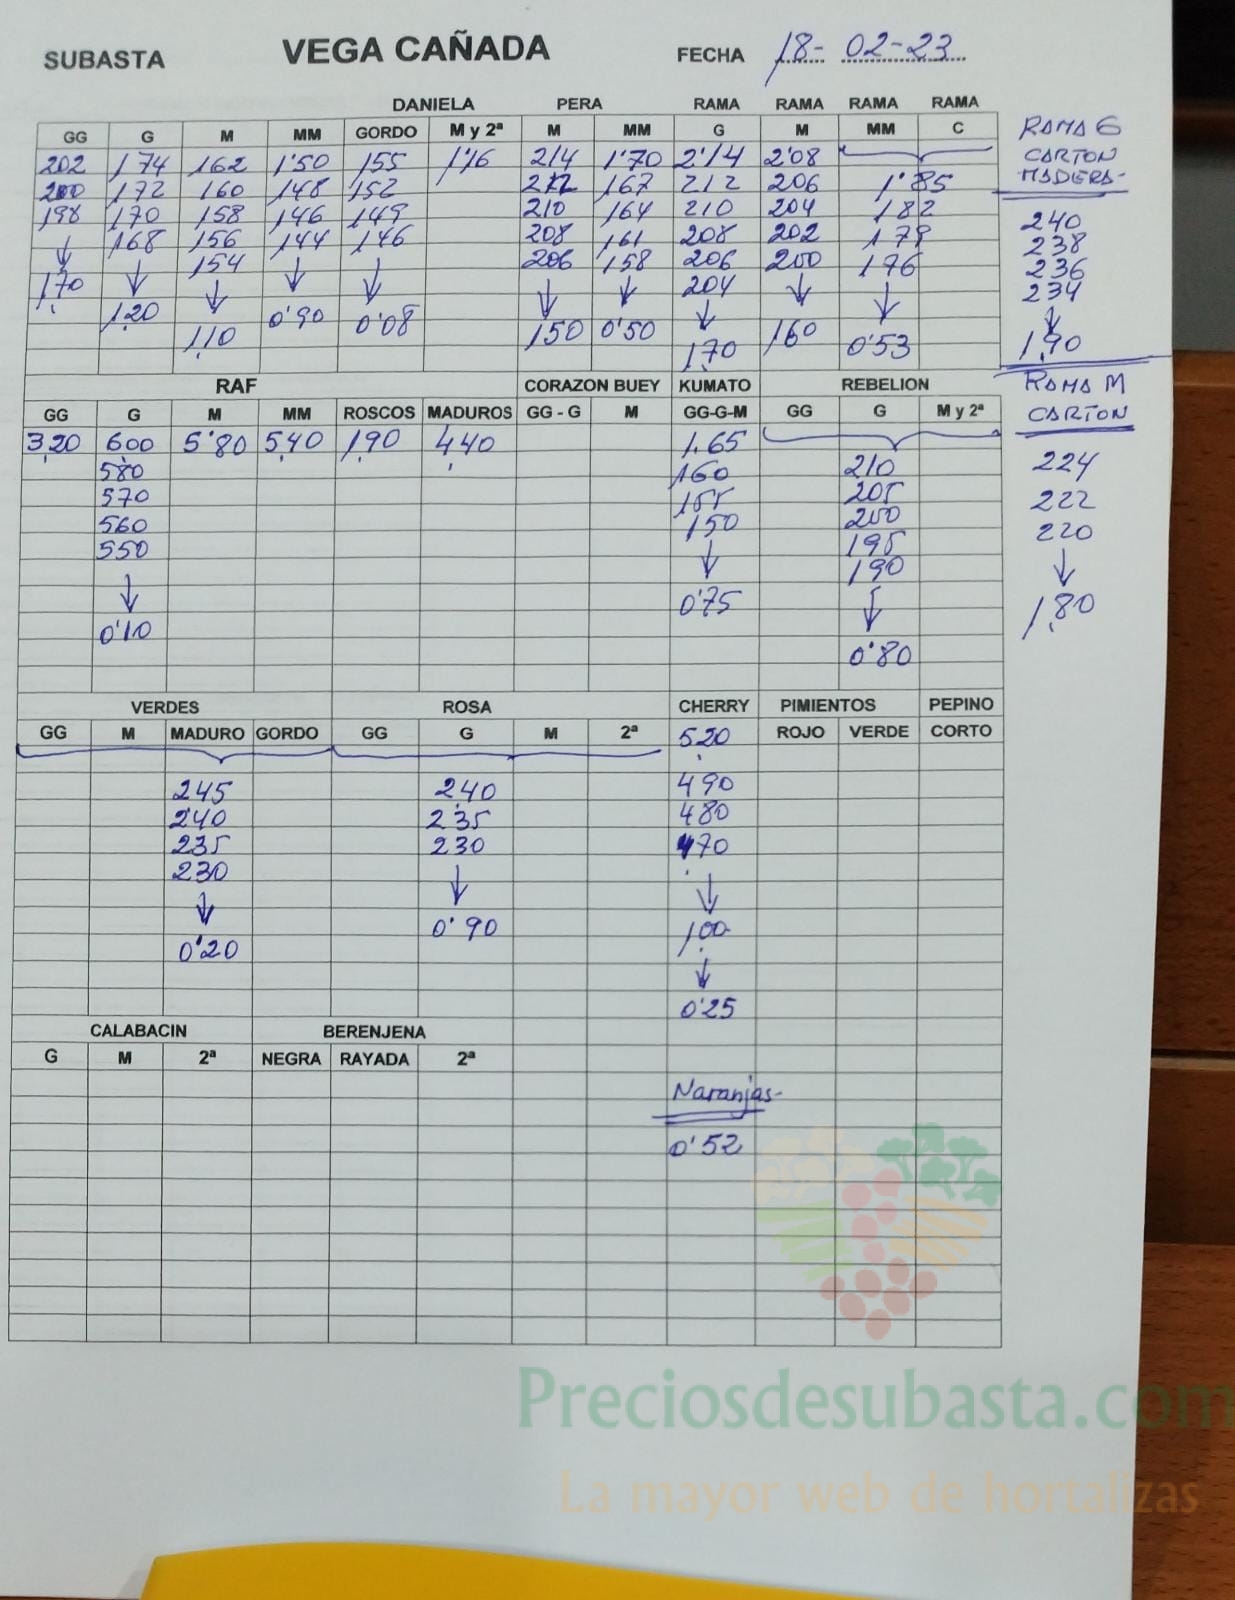 SUBASTA VEGA CAÑADA FECHA 18- 02-23
DANIELA PERA RAMA RAMA RAMA RAMA
GG G M MM GORDO M y 2ª M MM G M MM C
202 174 162 1'50 155 1'16 214 1'70 2'14 2'08
200 172 160 148 152 212 167 212 206 1'85
198 170 158 146 149 210 164 210 204 182
↓ 168 156 144 146 208 161 208 202 179
170 ↓ 154 ↓ ↓ 206 158 206 200 176
120 ↓ 0'90 0'08 ↓ ↓ 204 ↓ ↓
110 150 0'50 ↓ 160 0'53
170
RAMA G
CARTON
MADERA-
240
238
236
234
↓
1,90
RAMA M
CARTON
224
222
220
↓
1,80
RAF CORAZON BUEY KUMATO REBELION
GG G M MM ROSCOS MADUROS GG - G M GG-G-M GG G M y 2ª
3,20 600 5'80 5,40 1,90 4,40 1,65
580 160 210
570 155 205
560 150 200
550 ↓ 195
↓ 0'75 190
0'10 ↓
0'80
VERDES ROSA CHERRY PIMIENTOS PEPINO
GG M MADURO GORDO GG G M 2ª 520 ROJO VERDE CORTO
245 240 490
240 235 480
235 230 470
230 ↓ ↓
↓ 0'90 1,00
0'20 ↓
0'25
CALABACIN BERENJENA
G M 2ª NEGRA RAYADA 2ª
Naranjas-
0'52
Preciosdesubasta.com
La mayor web de hortalizas